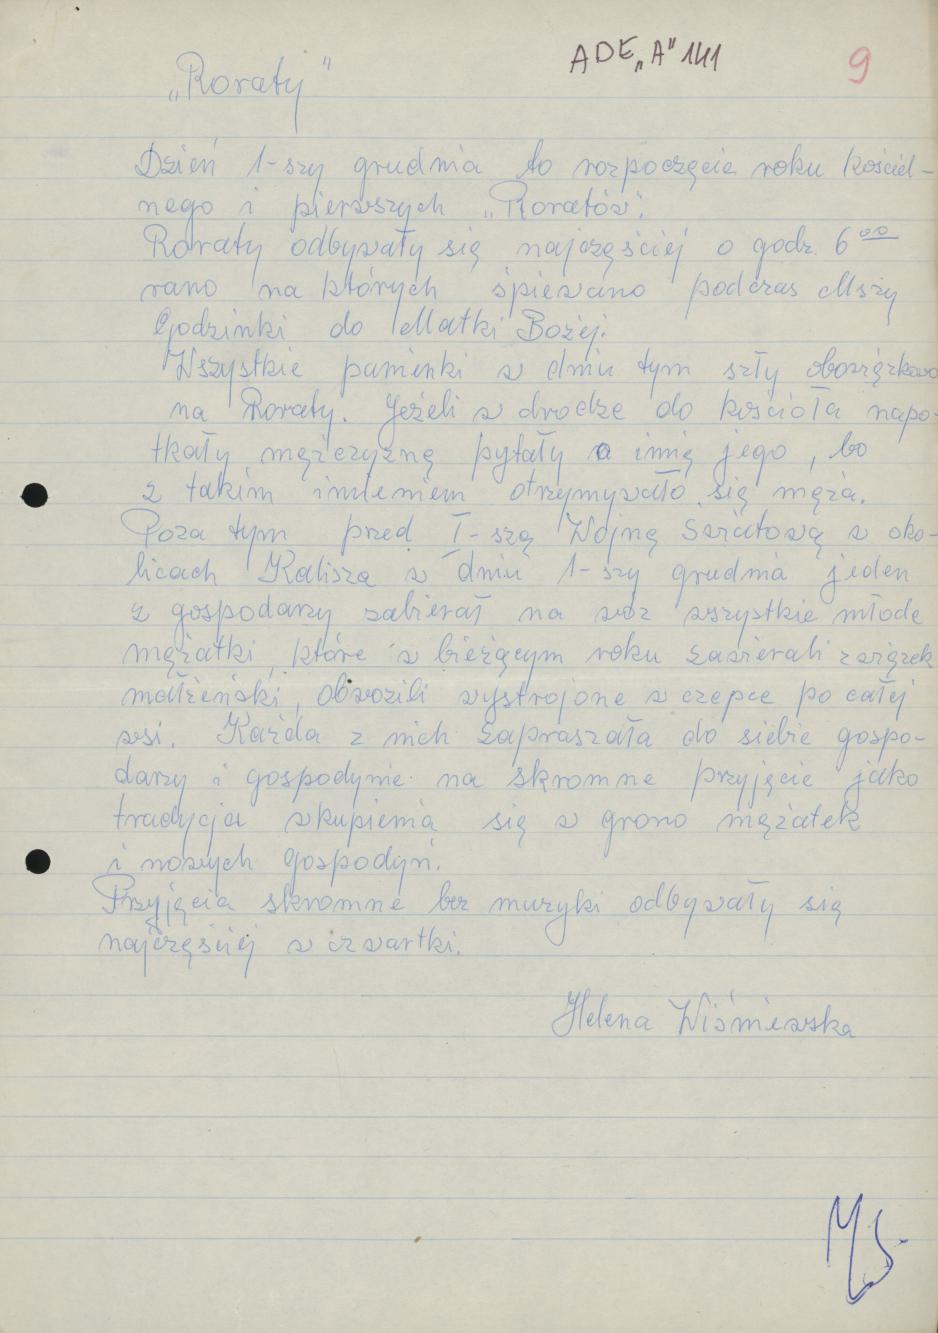 ADE „A" 141
9
„Roraty"
Dzień 1-szy grudnia to rozpoczęcie roku kościel-
nego i pierwszych „Roratów".
Roraty odbywały się najczęściej o godz. 6⁰⁰
rano na których śpiewano podczas Mszy
Godzinki do Matki Bożej.
Wszystkie panienki w dniu tym szły obowiązkowo
na Roraty. Jeżeli w drodze do kościoła napo-
tkały mężczyznę pytały o imię jego, bo
z takim imieniem otrzymywało się męża.
Poza tym przed I-szą Wojną Światową w oko-
licach Kalisza w dniu 1-szy grudnia jeden
z gospodarzy zabierał na wóz wszystkie młode
mężatki, które w bieżącym roku zawierali związek
małżeński, obwozili wystrojone w czepce po całej
wsi. Każda z nich zapraszała do siebie gospo-
darzy i gospodynie na skromne przyjęcie jako
tradycja wkupienia się w grono mężatek
i nowych gospodyń.
Przyjęcia skromne bez muzyki odbywały się
najczęściej w czwartki.
Helena Wiśniewska
MS